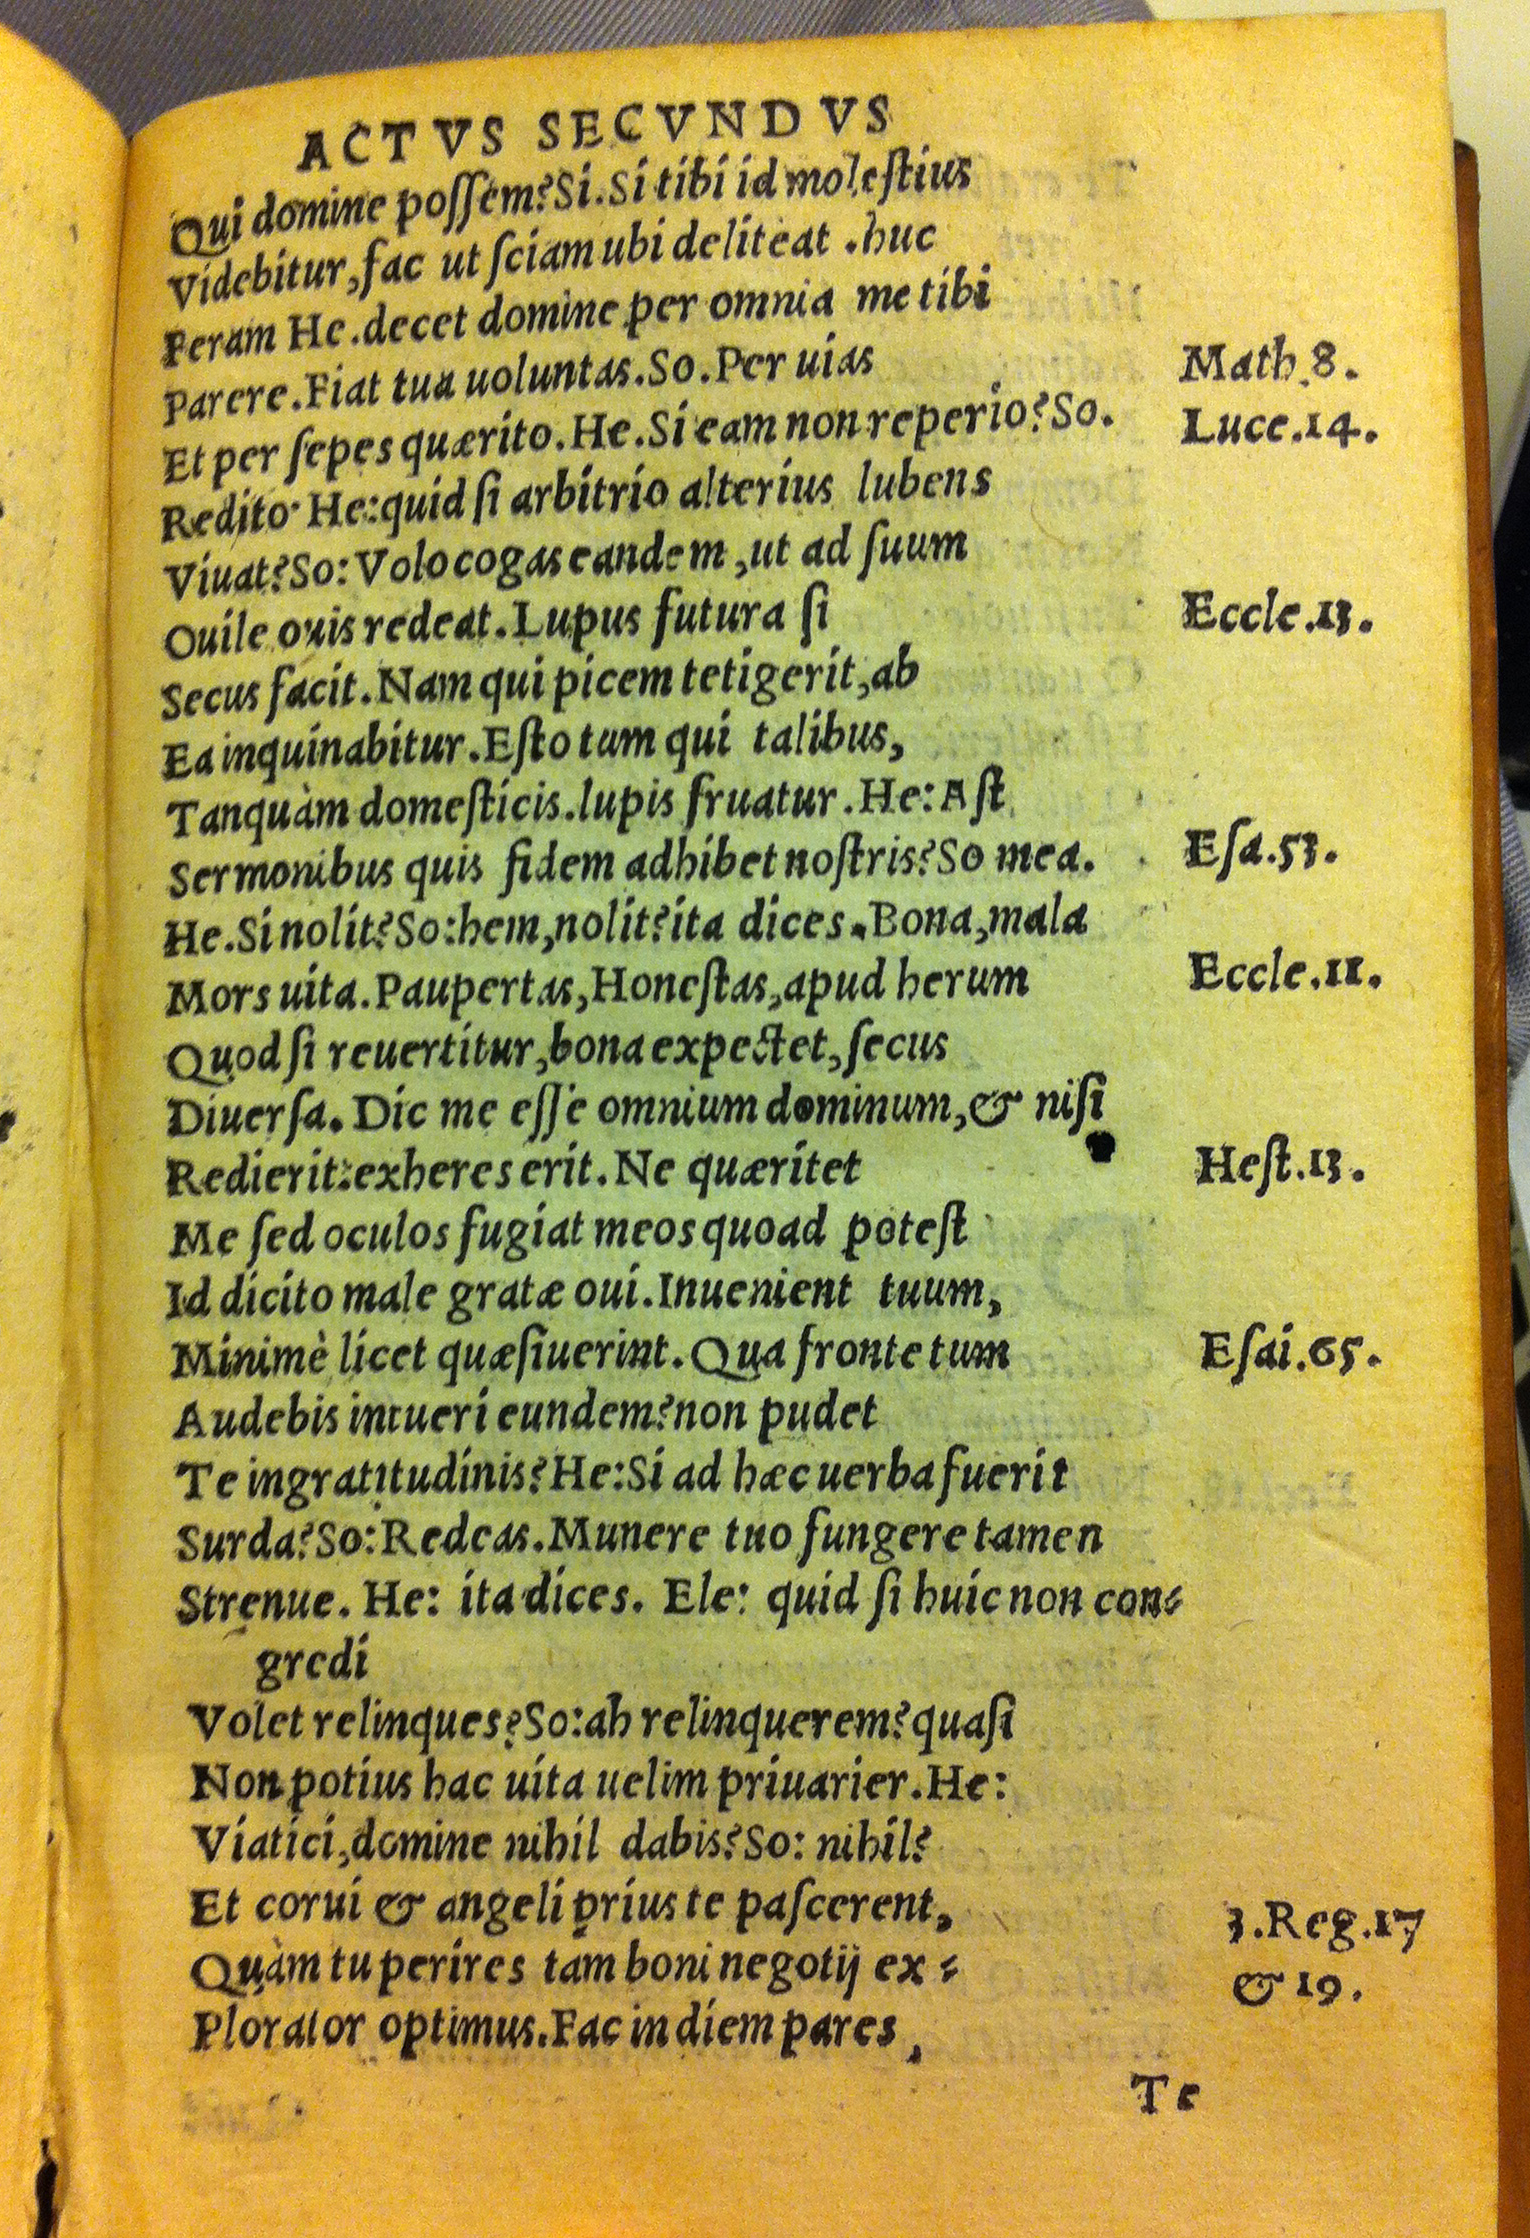 ACTVS SECVNDVS
Qui domine poſſem?Si.Si tibi id moleſtius
Videbitur,fac ut ſciam ubi deliteat .huc
Feram He.decet domine per omnia me tibi
Parere.Fiat tua uoluntas.So.Per uias
Math.8.
Et per ſepes quærito.He.Si eam non reperio?So.
Luce.14.
Redito· He:quid ſi arbitrio alterius lubens
Viuat?So:Volo cogas eandem ,ut ad ſuum
Ouile ouis redeat.Lupus futura ſi
Eccle.13.
Secus facit.Nam qui picem tetigerit,ab
Ea inquinabitur.Eſto tum qui talibus,
Tanquàm domeſticis.lupis fruatur.He:Aſt
Sermonibus quis fidem adhibet noſtris?So mea.
Eſa.53.
He.Si nolit?So:hem,nolit?ita dices.Bona,mala
Mors uita.Paupertas,Honeſtas,apud herum
Eccle.11.
Quod ſi reuertitur,bona expectet,ſecus
Diuerſa. Dic me eſſe omnium dominum,& niſi
Redierit:exheres erit.Ne quæritet
Heſt.13.
Me ſed oculos fugiat meos quoad poteſt
Id dicito male gratæ oui.Inuenient tuum,
Minimè licet quæſiuerint.Qua fronte tum
Eſai.65.
Audebis intueri eundem?non pudet
Te ingratitudinis?He:Si ad hæc uerba fuerit
Surda?So:Redeas.Munere tuo fungere tamen
Strenue. He: ita dices. Ele: quid ſi huic non con⸗
gredi
Volet relinques?So:ah relinquerem?quaſi
Non potius hac uita uelim priuarier.He:
Viatici,domine nihil dabis?So: nihil?
Et corui & angeli prius te paſcerent,
3.Reg.17
Quàm tu perires tam boni negotij ex⸗
& 19.
Plorator optimus.Fac in diem pares,
Te